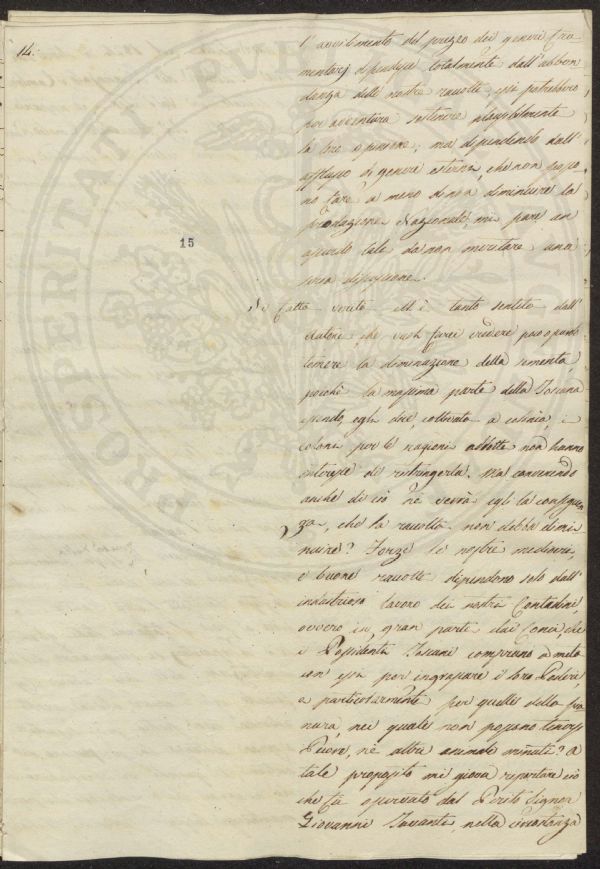 14.
l'avvilimento del prezzo dei generi fru
mentarj dipendesse totalmente dall'abbon
danza delle nostre raccolte, essi potrebbero
per avventura sostenere plausibilmente
la loro opinione; ma dipendendo dall'
afflusso di genere estero, che non posso
no fare a meno di non diminuire la
produzione Nazionale, mi pare un
assurdo tale da non meritare una
seria discussione.
15
Di fatto verità ell'è tanto sentita dall'
Autore, che vuol farci credere poco o punto
temere la diminuzione della sementa,
perchè la massima parte della Toscana
essendo, egli dice, coltivata a colonìa, i
coloni per le ragioni addotte non hanno
interesse di restringerla. Ma convenendo
anche di ciò ne verrà egli la conseguen
za, che la raccolta non debba dimi
nuire? Forse le nostre mediocri,
e buone raccolte dipendono solo dall'
industrioso lavoro dei nostri Contadini,
ovvero in gran parte dai Conci che
i Possidenti Toscani comprano a metà
con essi per ingrassare i loro Poderi,
e particolarmente per quelli della pia
nura, nei quali non possono tenersi
Pecore, nè altri animali minuti? A
tale proposito mi giova riportare ciò
che fu osservato dal Perito Signor
Giovanni nella circostanza
PROSPERITATI PUBLICAE